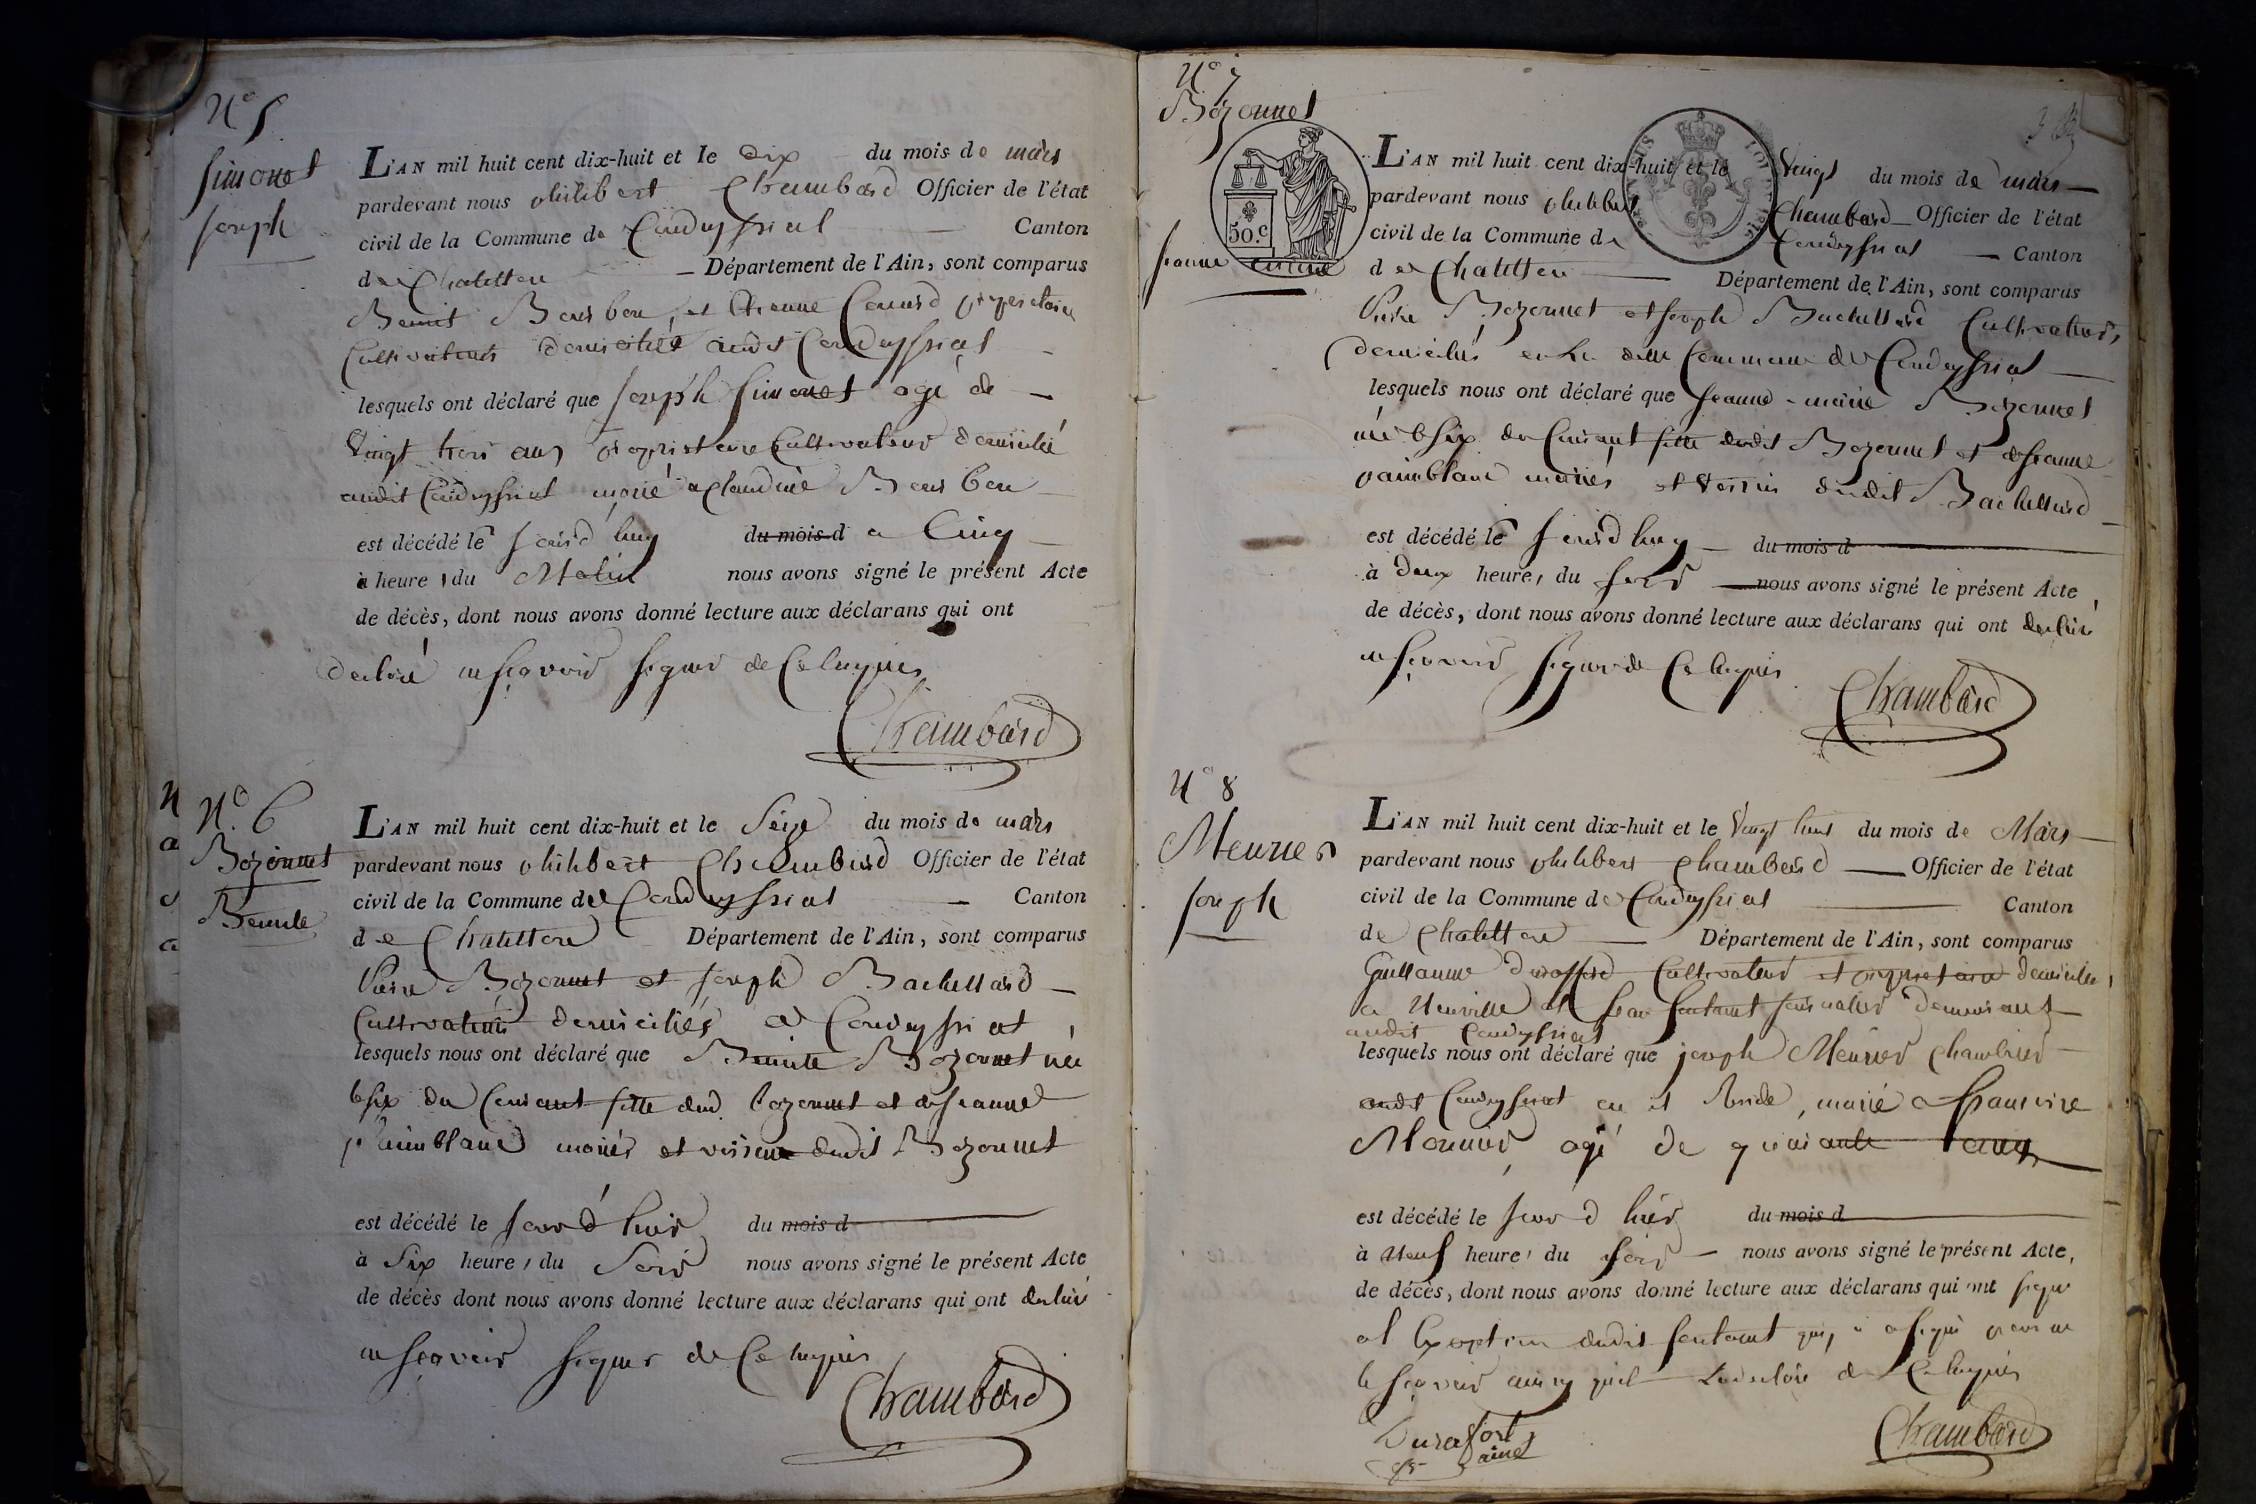 N° 5
Simonet
Joseph
L'AN mil huit cent dix-huit et le dix du mois de mars
pardevant nous philibert Chambard Officier de l'état
civil de la Commune de Condeyssiat Canton
de Chatillon Département de l'Ain, sont comparus
Benoit Bourbon, et Etienne propriétaires
Cultivateurs domiciliés audit Condeyssiat
lesquels ont déclaré que Joseph Simonet agé de
vingt trois ans propriétaire Cultivateur domicilié
audit Condeyssiat marié a Claudine Bourbon
est décédé le Jourd'huy du mois d a Cinq
à heure, du Matin nous avons signé le présent Acte
de décès, dont nous avons donné lecture aux déclarans qui ont
declaré ne sçavoir signer de Ce Enquis
Chambard
N° 6
Bozonnet
Benoite
L'AN mil huit cent dix-huit et le Seize du mois de mars
pardevant nous philibert Chambard Officier de l'état
civil de la Commune de Condeyssiat Canton
de Chatillon Département de l'Ain, sont comparus
Pierre Bozonnet et Joseph Bachellard
Cultivateurs domiciliés a Condeyssiat
lesquels nous ont déclaré que Benoite Bozonnet née
le six du Courant fille dud. bozonnet et de Jeanne
painblanc mariés et voisin dudit Bozonnet
est décédé le Jour d'hier du mois d
à Six heure, du Soir nous avons signé le présent Acte
de décès dont nous avons donné lecture aux déclarans qui ont declaré
ne sçavoir signer de Ce Enquis
Chambard
N° 7
Bozonnet
Jeanne marie
50.c
L'AN mil huit cent dix-huit et le Vingt du mois de mars
pardevant nous philibert Chambard Officier de l'état
civil de la Commune de Condeyssiat Canton
de Chatillon Département de l'Ain, sont comparus
Pierre Bozonnet et Joseph Bachellard Cultivateurs
domiciliés en la dite Commune de Condeyssiat
lesquels nous ont déclaré que Jeanne-marie Bozonnet
née le six du Courant fille dudit Bozonnet et de Jeanne
painblanc mariés et voisin dudit Bachellard
est décédé le Jourd'huy du mois d
à deux heure, du Soir nous avons signé le présent Acte
de décès, dont nous avons donné lecture aux déclarans qui ont declaré
ne sçavoir signer de Ce Enquis
Chambard
N° 8
Meunier
Joseph
L'AN mil huit cent dix-huit et le Vingt huit du mois de Mars
pardevant nous philibert Chambard Officier de l'état
civil de la Commune de Condeyssiat Canton
de Chatillon Département de l'Ain, sont comparus
Guillaume Cultivateur et propriétaire domicilié
a Neuville et Jean journalier demeurant
audit Condeyssiat
lesquels nous ont déclaré que joseph Meunier
audit Condeyssiat ou il Reside, marié a francoise
Monnier, agé de quarante ans
est décédé le Jour d'hier du mois d
à Neuf heure, du Soir nous avons signé le présent Acte,
de décès, dont nous avons donné lecture aux déclarans qui ont signé
a l'exception dudit qui, n'a signé pour ne
le sçavoir ainsy qu'il L'a declaré de Ce Enquis
Durafort
ainé
Chambard